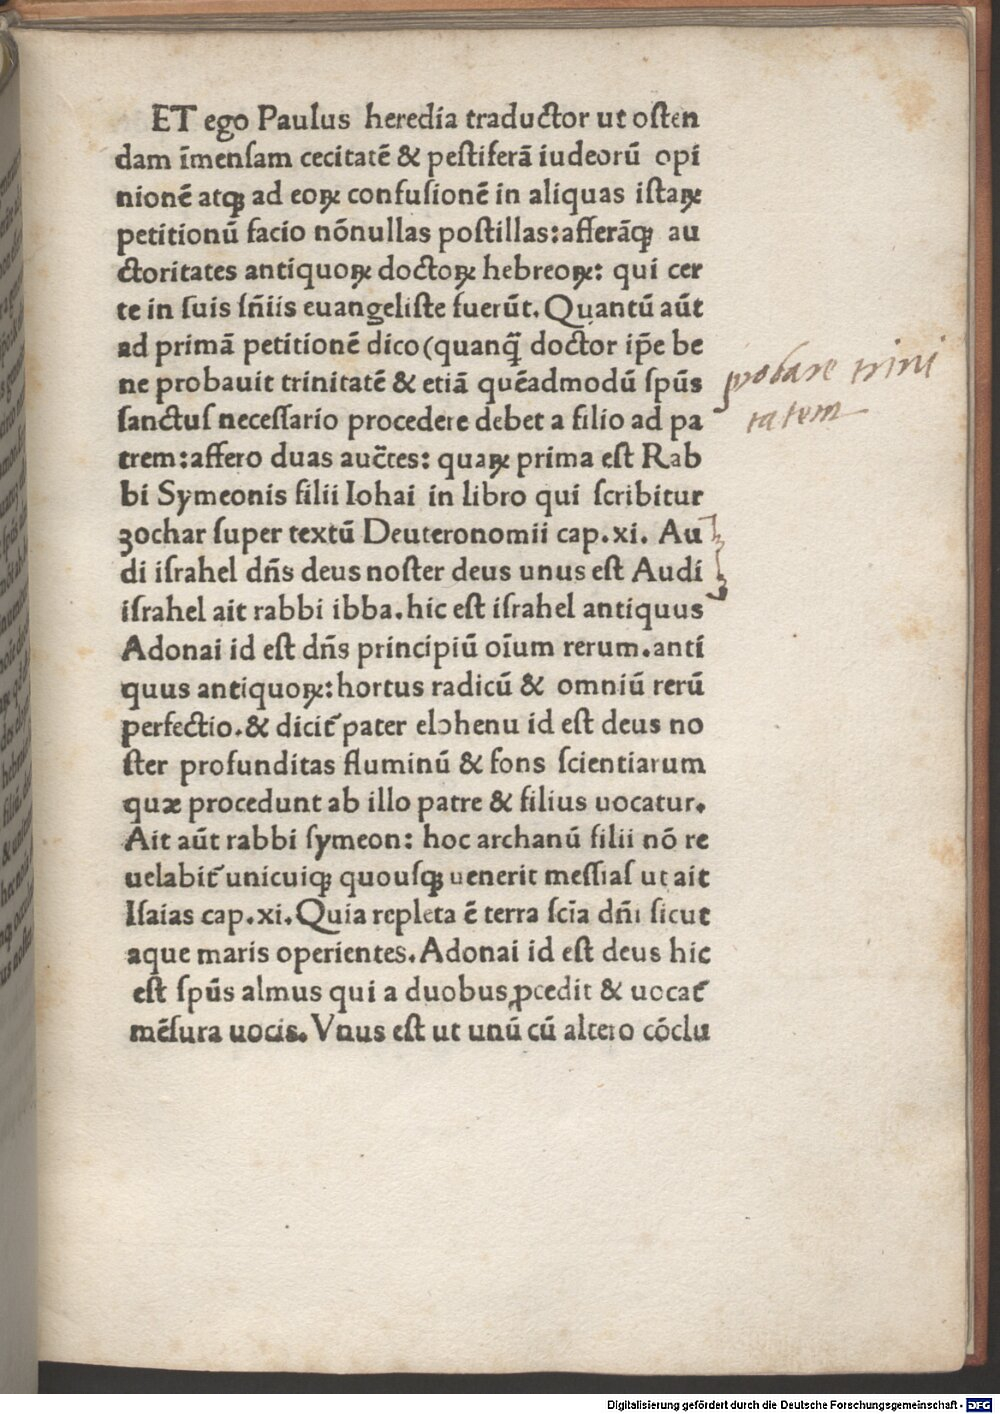 ET ego Paulus heredia traductor ut osten
dam īmensam cecitatē & pestiferā iudeorū opi
nionē atqꝫ ad eoꝝ confusionē in aliquas istaꝝ
petitionū facio nōnullas postillas:afferāqꝫ au
ctoritates antiquoꝝ doctoꝝ hebreoꝝ: qui cer
te in suis sn̄iis euangeliste fuerūt. Quantū aūt
ad primā petitionē dico(quanq̄ doctor ip̄e be
ne probauit trinitatē & etiā quēadmodū spūs
sanctus necessario procedere debet a filio ad pa
trem:affero duas auc̄tes: quaꝝ prima est Rab
bi Symeonis filii Iohai in libro qui scribitur
zochar super textū Deuteronomii cap.xi. Au
di israhel dn̄s deus noster deus unus est Audi
israhel ait rabbi ibba.hic est israhel antiquus
Adonai id est dn̄s principiū oīum rerum.anti
quus antiquoꝝ:hortus radicū & omniū rerū
perfectio.& dicit᷑ pater elohenu id est deus no
ster profunditas fluminū & fons scientiarum
quæ procedunt ab illo patre & filius uocatur.
Ait aūt rabbi symeon: hoc archanū filii nō re
uelabit᷑ unicuiqꝫ quousqꝫ uenerit messias ut ait
Isaias cap.xi.Quia repleta ē terra scīa dn̄i sicut
aque maris operientes.Adonai id est deus hic
est spūs almus qui a duobus ꝓcedit & uocat᷑
mēsura uocis. Vnus est ut unū cū altero cōclu
probare trini
tatem
Digitalisierung gefördert durch die Deutsche Forschungsgemeinschaft - DFG